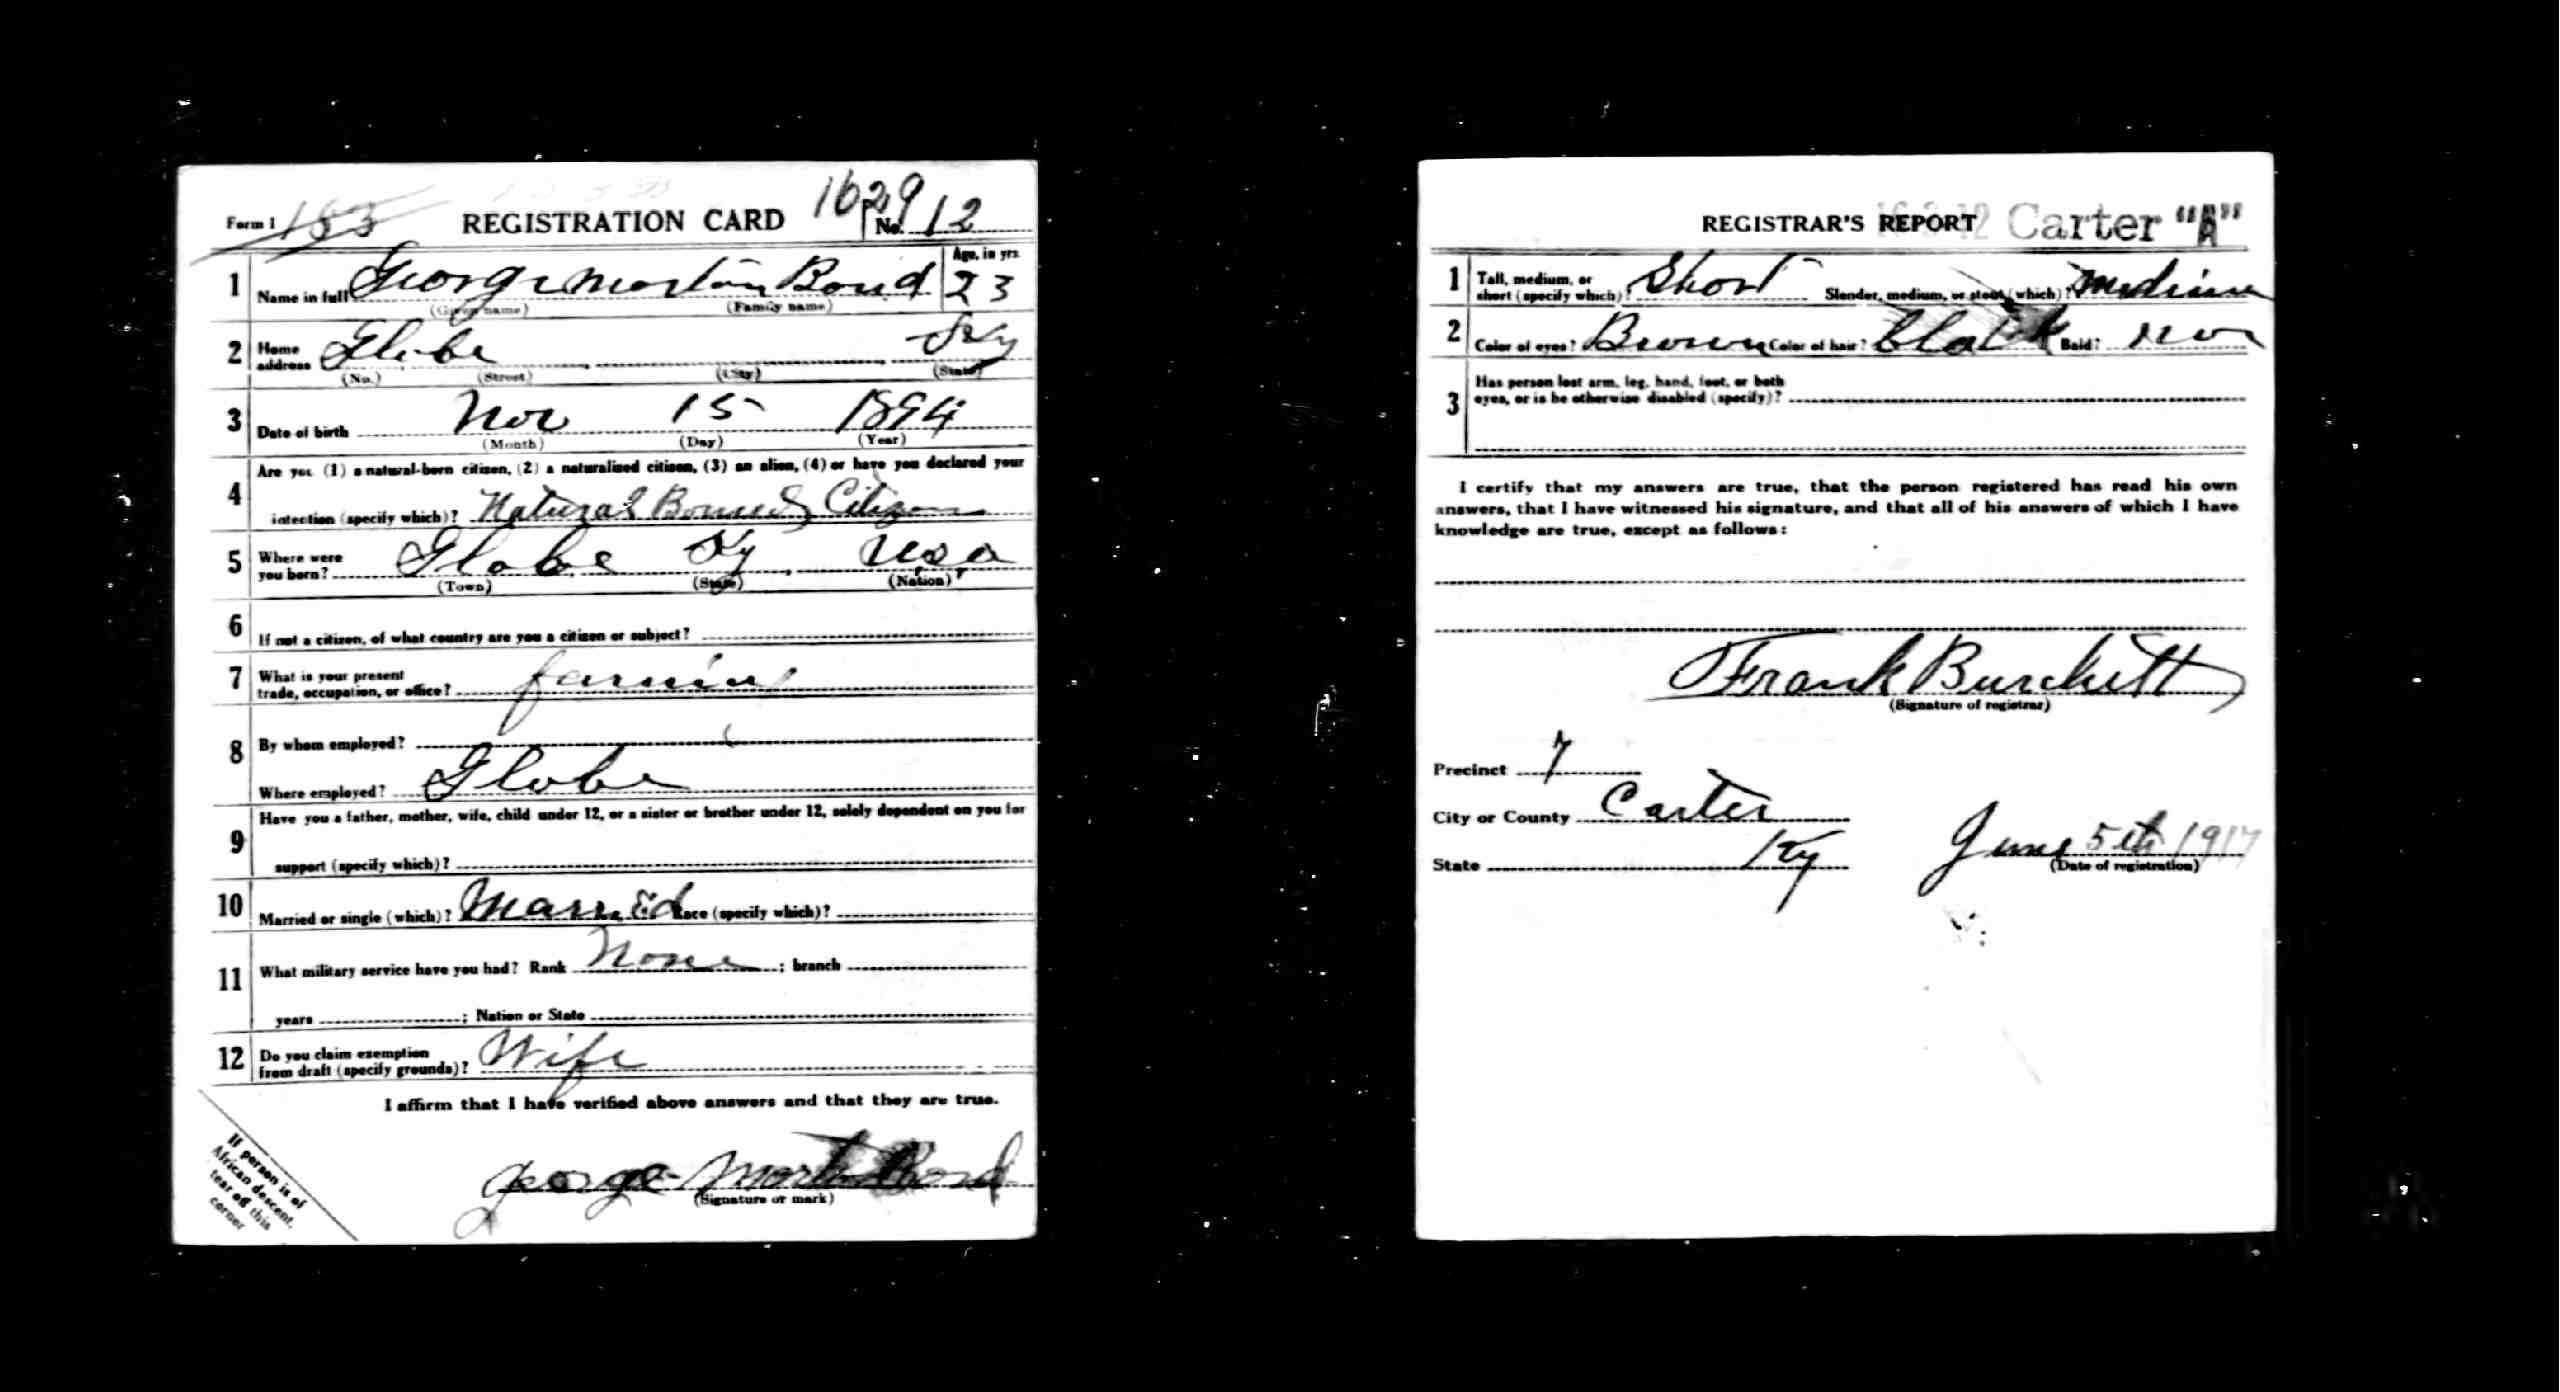 1629
Form 1 153 REGISTRATION CARD No. 12
1 Name in full George Morton Bond Age, in yrs. 23
(Given name) (Family name)
2 Home address Globe Ky
(No.) (Street) (City) (State)
3 Date of birth Nov 15 1894
(Month) (Day) (Year)
4 Are you (1) a natural-born citizen, (2) a naturalized citizen, (3) an alien, (4) or have you declared your
intention (specify which)? Natural Citizen
5 Where were you born? Globe Ky USA
(Town) (State) (Nation)
6 If not a citizen, of what country are you a citizen or subject?
7 What is your present
trade, occupation, or office? farming
8 By whom employed?
Where employed? Globe
9 Have you a father, mother, wife, child under 12, or a sister or brother under 12, solely dependent on you for
support (specify which)?
10 Married or single (which)? Married Race (specify which)?
11 What military service have you had? Rank None ; branch
years ; Nation or State
12 Do you claim exemption
from draft (specify grounds)? Wife
I affirm that I have verified above answers and that they are true.
George Morton Bond
(Signature or mark)
If person is of
African descent,
tear off this
corner
REGISTRAR'S REPORT Carter "A"
1 Tall, medium, or
short (specify which)? Short Slender, medium, or stout (which)? Medium
2 Color of eyes? Brown Color of hair? Black Bald?
3 Has person lost arm, leg, hand, foot, or both
eyes, or is he otherwise disabled (specify)?
I certify that my answers are true, that the person registered has read his own
answers, that I have witnessed his signature, and that all of his answers of which I have
knowledge are true, except as follows:
Frank Burchett
(Signature of registrar)
Precinct 7
City or County Carter
State Ky June 5th 1917
(Date of registration)